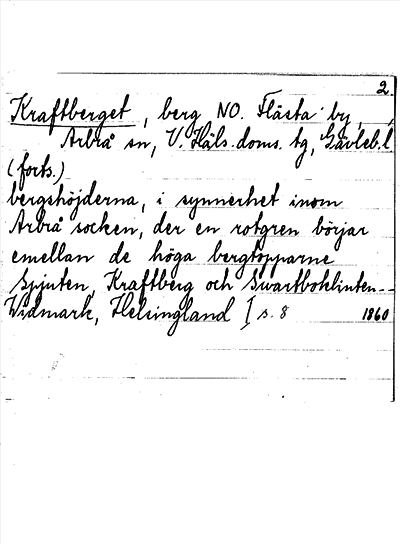 2.
Kraftberget, berg NO. Flästa by,
Arbrå sn, V. Häls. doms. tg, Gävleb. l
(forts.)
bergshöjderna, i synnerhet inom
Arbrå socken, der en rotgren börjar
emellan de höga bergtopparne
Spjuten, Kraftberg och Swartbohlinten--
Widmark, Helsingland I s. 8 1860